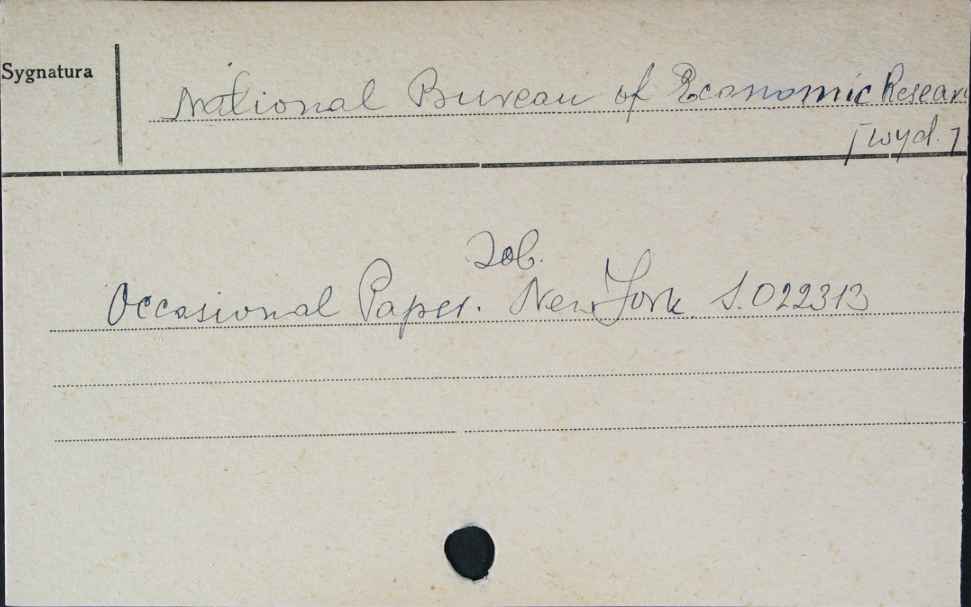 Sygnatura
National Bureau of Economic Researc
[wyd.]
Zob.
Occasional Paper. New York S.022313